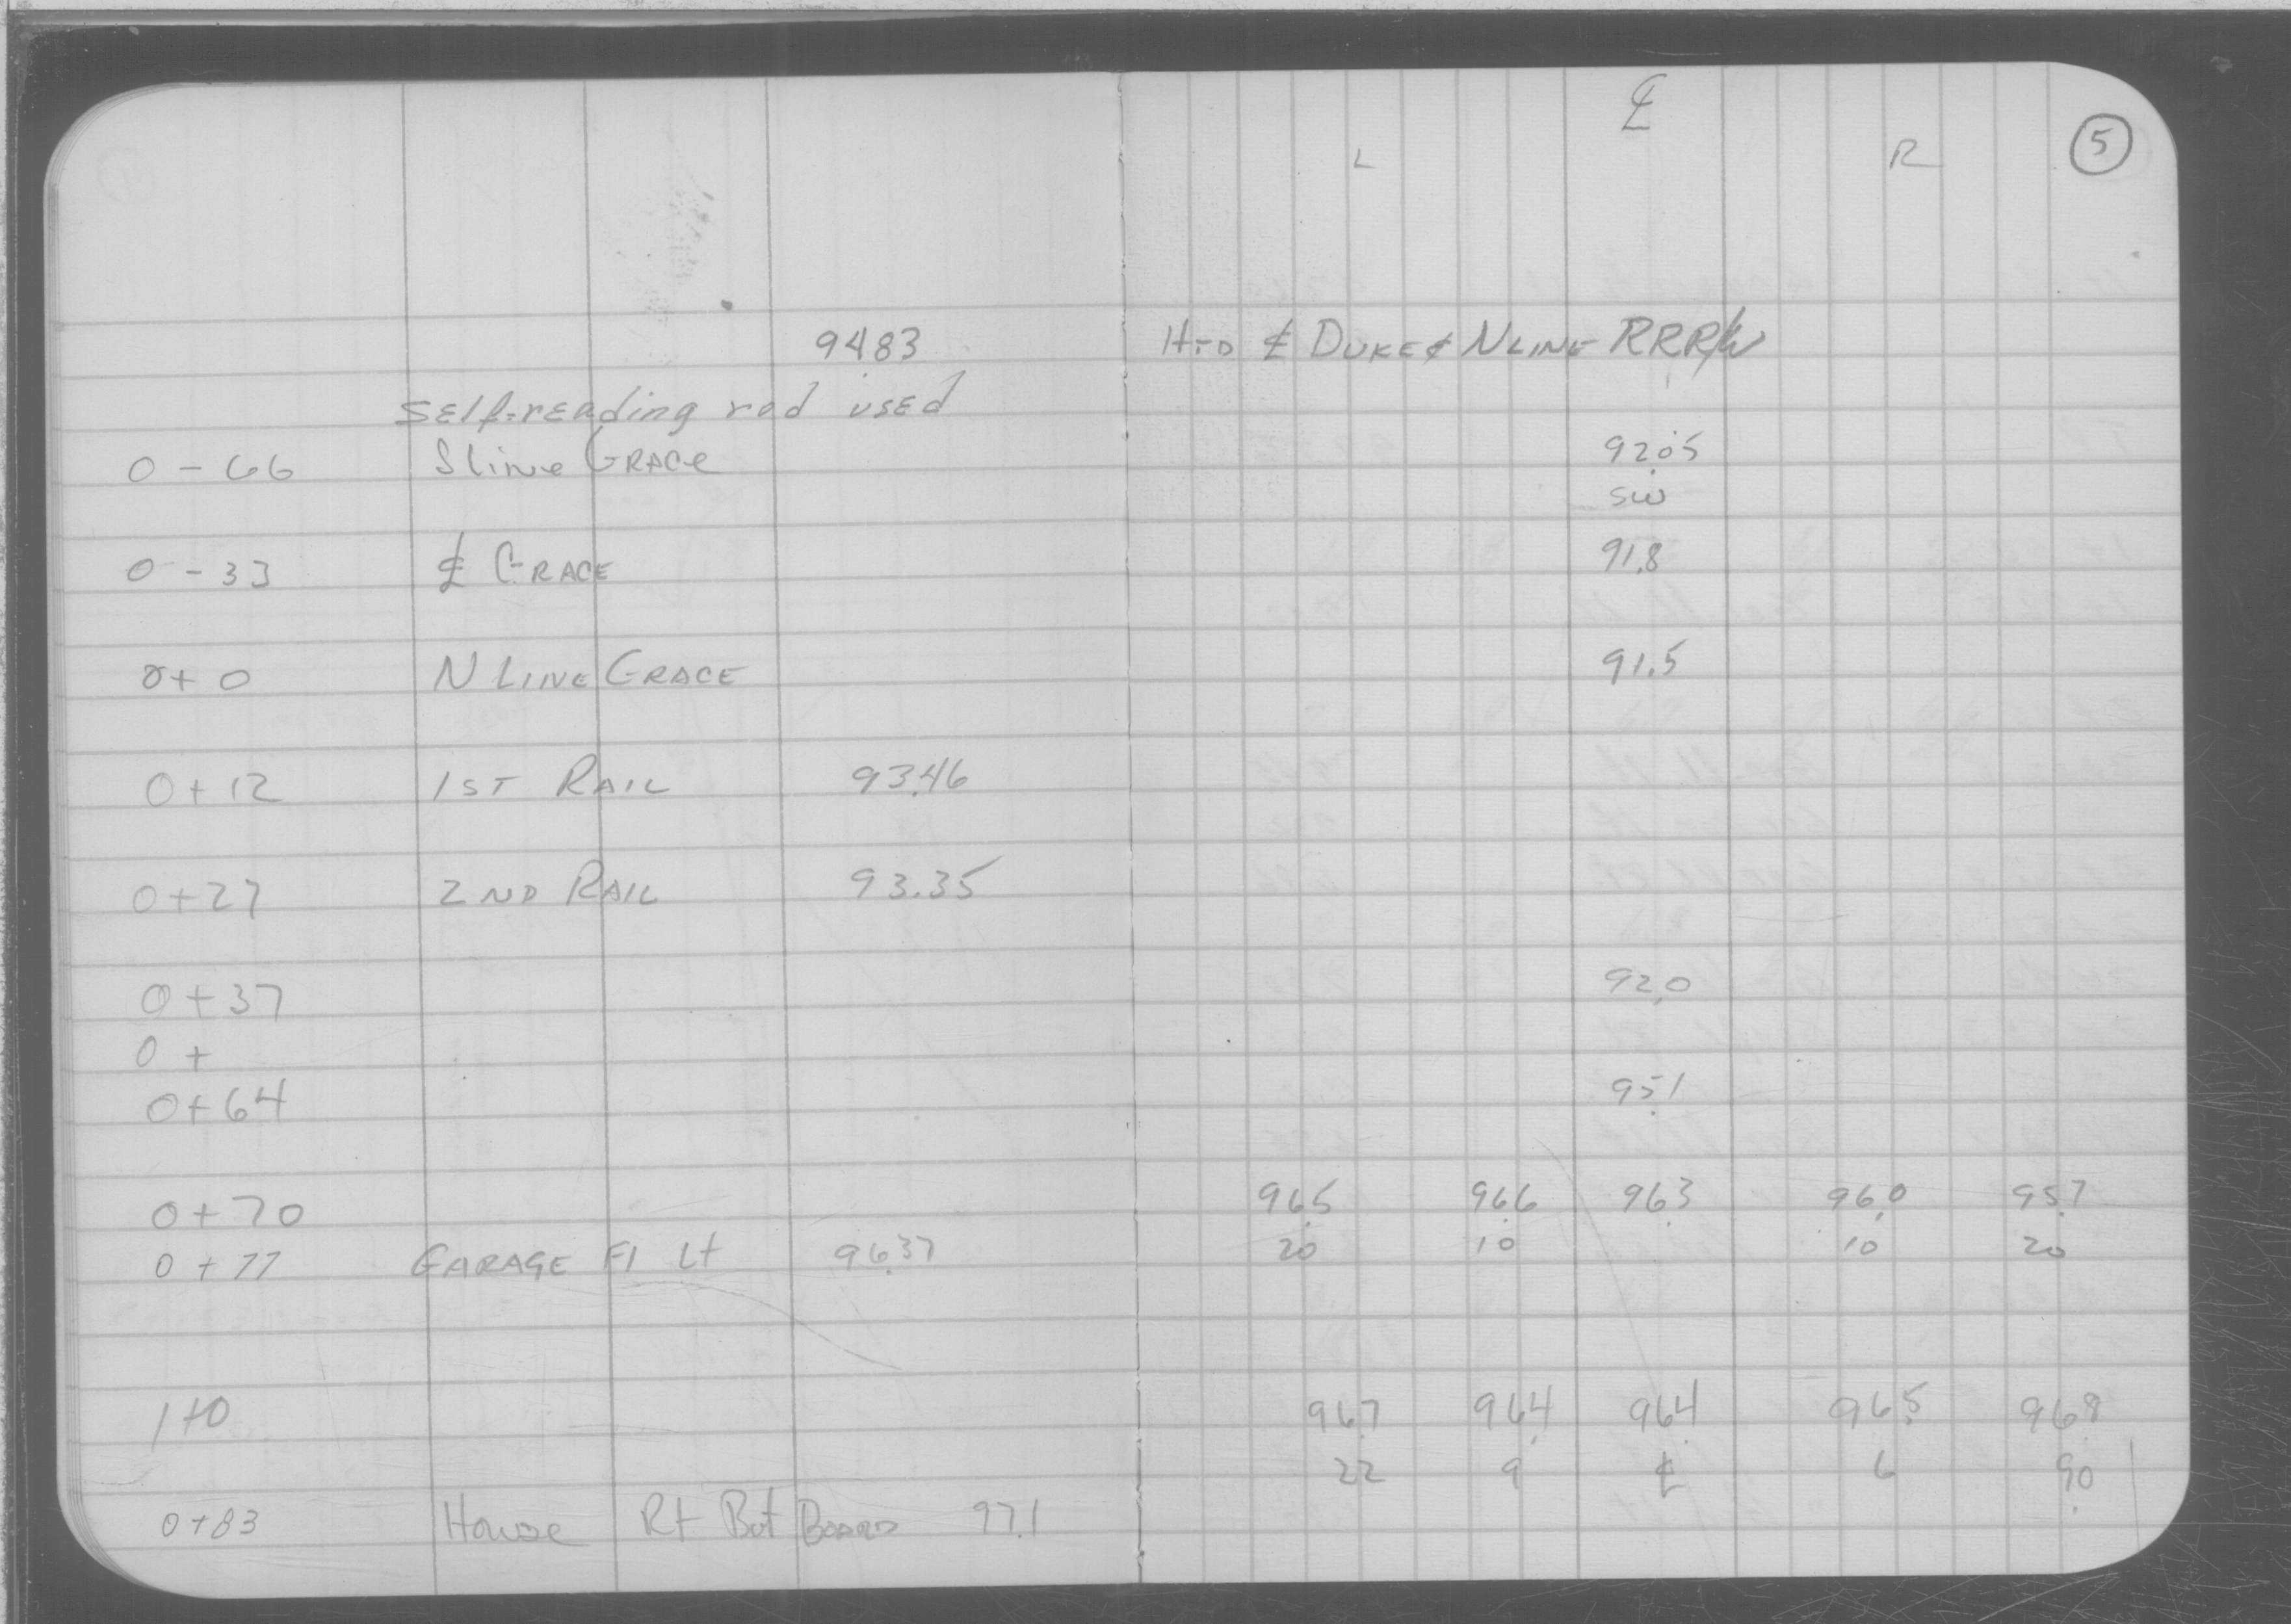 ℄
L R 5
94.83 H+D ℄ DUKE & N LINE RRR/W
SElf-rEAding rod usEd
0-66 S Line GRACE 92.05
SW
0-33 ℄ GRACE 91.8
0+0 N LINE GRACE 91.5
0+12 1ST RAIL 93.46
0+27 2ND RAIL 93.35
0+37 92.0
0+
0+64 95.1
0+70 96.5 96.6 96.3 96.0 95.7
20 10 10 20
0+77 GARAGE Fl Lt 96.37
1+0 96.7 96.4 96.4 96.5 96.8
22 9 ℄ 6 90
0+83 House Rt Bot BOARD 97.1